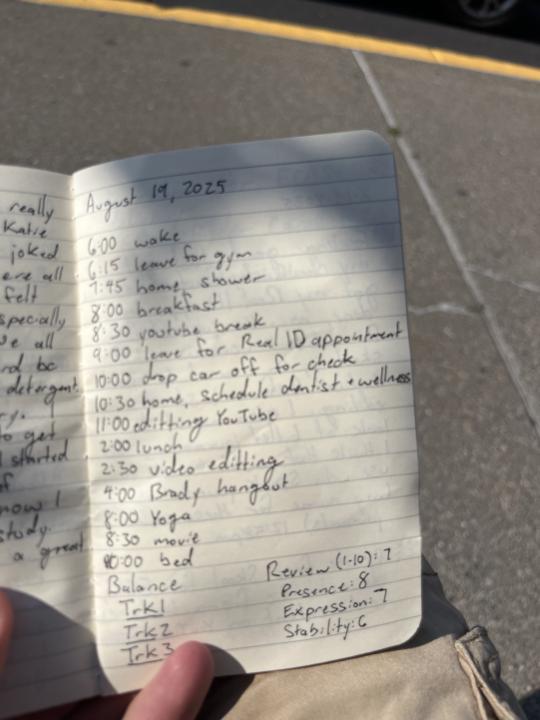 really
Katie
joked
ere all
felt
specially
ve all
rd bc
detergent.
ry.
to get
I started
of
now I
study.
a great
August 19, 2025
6:00 wake
6:15 leave for gym
7:45 home, shower
8:00 breakfast
8:30 youtube break
9:00 leave for Real ID appointment
10:00 drop car off for check
10:30 home, schedule dentist + wellness
11:00 editting YouTube
2:00 lunch
2:30 video editting
4:00 Brady hangout
8:00 Yoga
8:30 movie
10:00 bed
Balance
Trk1
Trk2
Trk3
Review (1-10): 7
Presence: 8
Expression: 7
Stability: 6